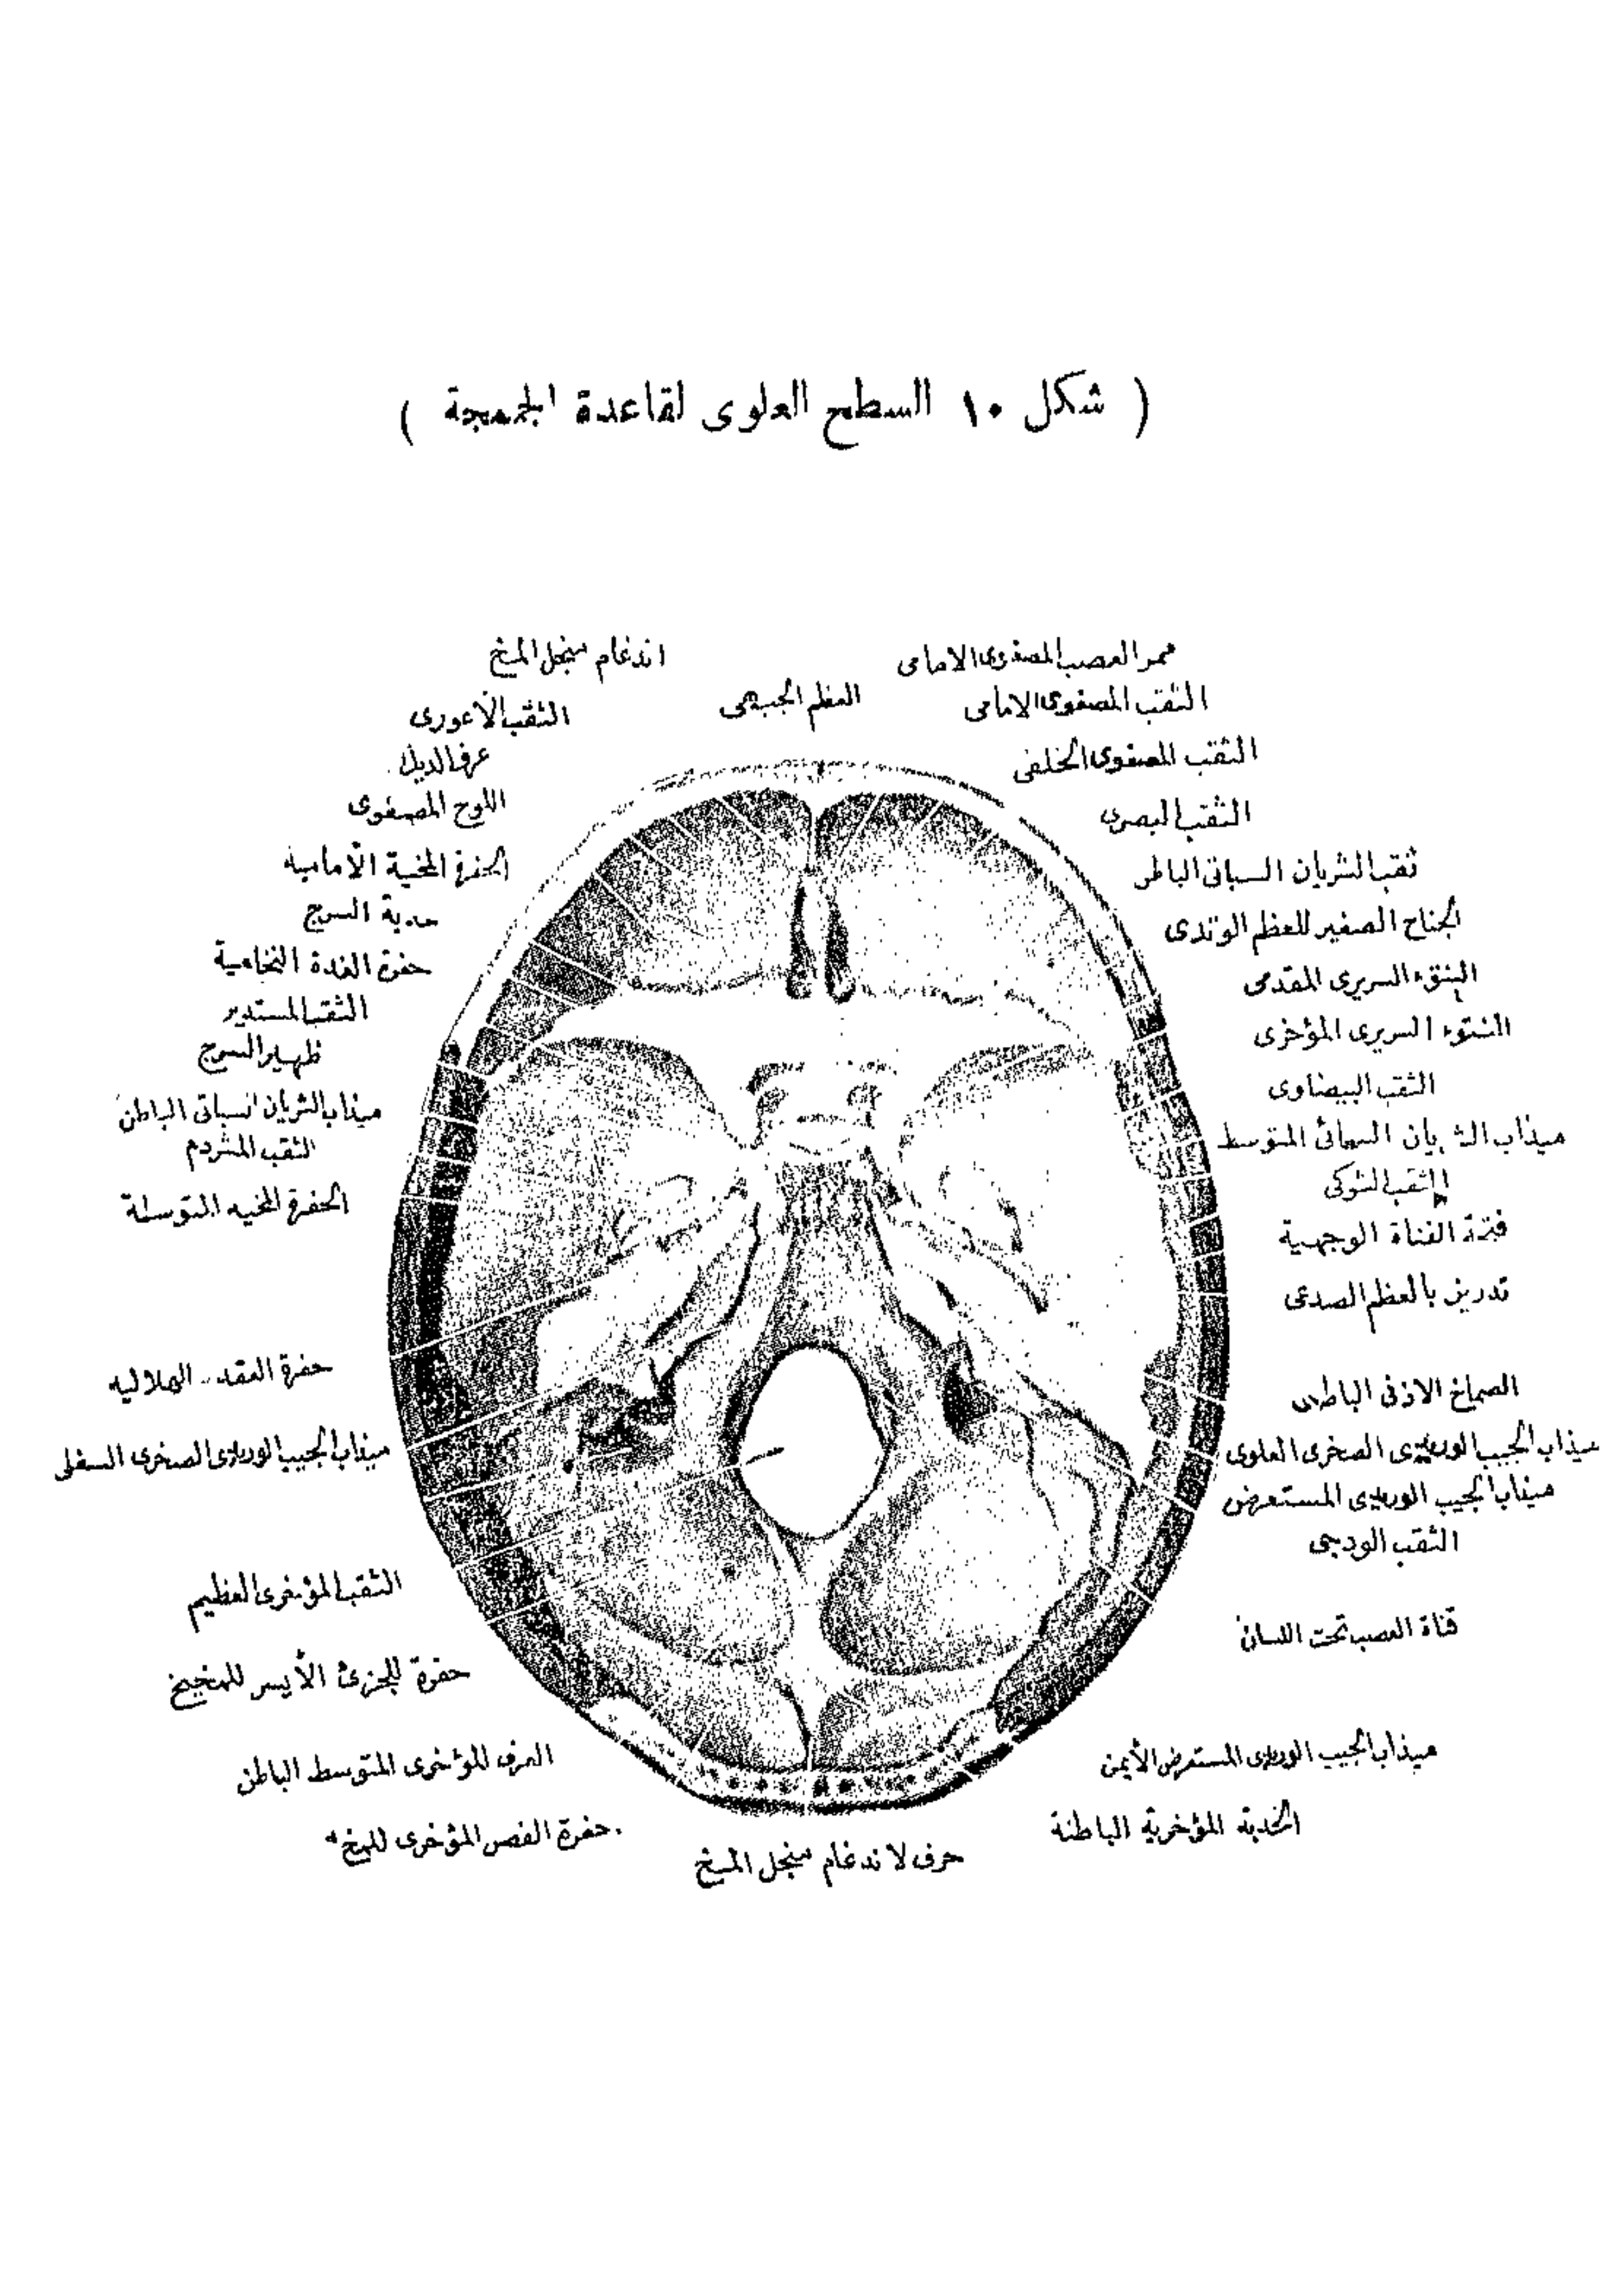 ( شكل ١٠ السطح العلوى لقاعدة الجمجمة )
ممر العصب المصفوى الامامى
اندغام منجل المخ
العظم الجبهى
الثقب المصفوى الامامى
الثقب الأعورى
الثقب المصفوى الخلفى
عرف الديك
اللوح المصفوى
الثقب البصرى
الحفرة المخية الأمامية
ثقب الشريان السباتى الباطن
حدبة السرج
الجناح الصغير للعظم الوتدى
حفرة الغدة النخامية
النتوء السريرى المقدمى
الثقب المستدير
النتوء السريرى المؤخرى
ظهير السرج
الثقب البيضاوى
ميذاب الشريان السباتى الباطن
ميذاب الشريان السحائى المتوسط
الثقب المشردم
الثقب الشوكى
الحفرة المخية المتوسطة
فتحة القناة الوجهية
تدريز بالعظم الصدغى
حفرة العقدة الهلالية
الصماخ الاذنى الباطن
ميذاب الجيب الوريدى الصخرى العلوى
ميذاب الجيب الوريدى الصخرى السفلى
ميذاب الجيب الوريدى المستعرض
الثقب الودجى
الثقب المؤخرى العظيم
قناة العصب تحت اللسان
حفرة للجزئ الأيسر للمخيخ
ميذاب الجيب الوريدى المستعرض الأيمن
العرف المؤخرى المتوسط الباطن
الحدبة المؤخرية الباطنة
حفرة الفص المؤخرى للمخ
حرف لاندغام منجل المخ